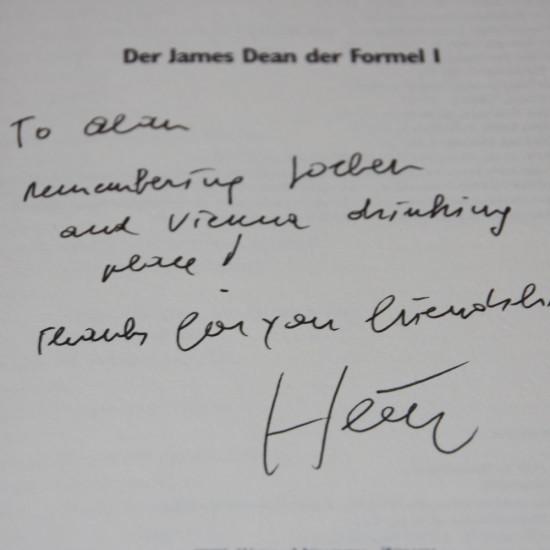 Der James Dean der Formel 1
To alan
remembering Jochen
and Vienna drinking
place!
Thanks for you friendshi